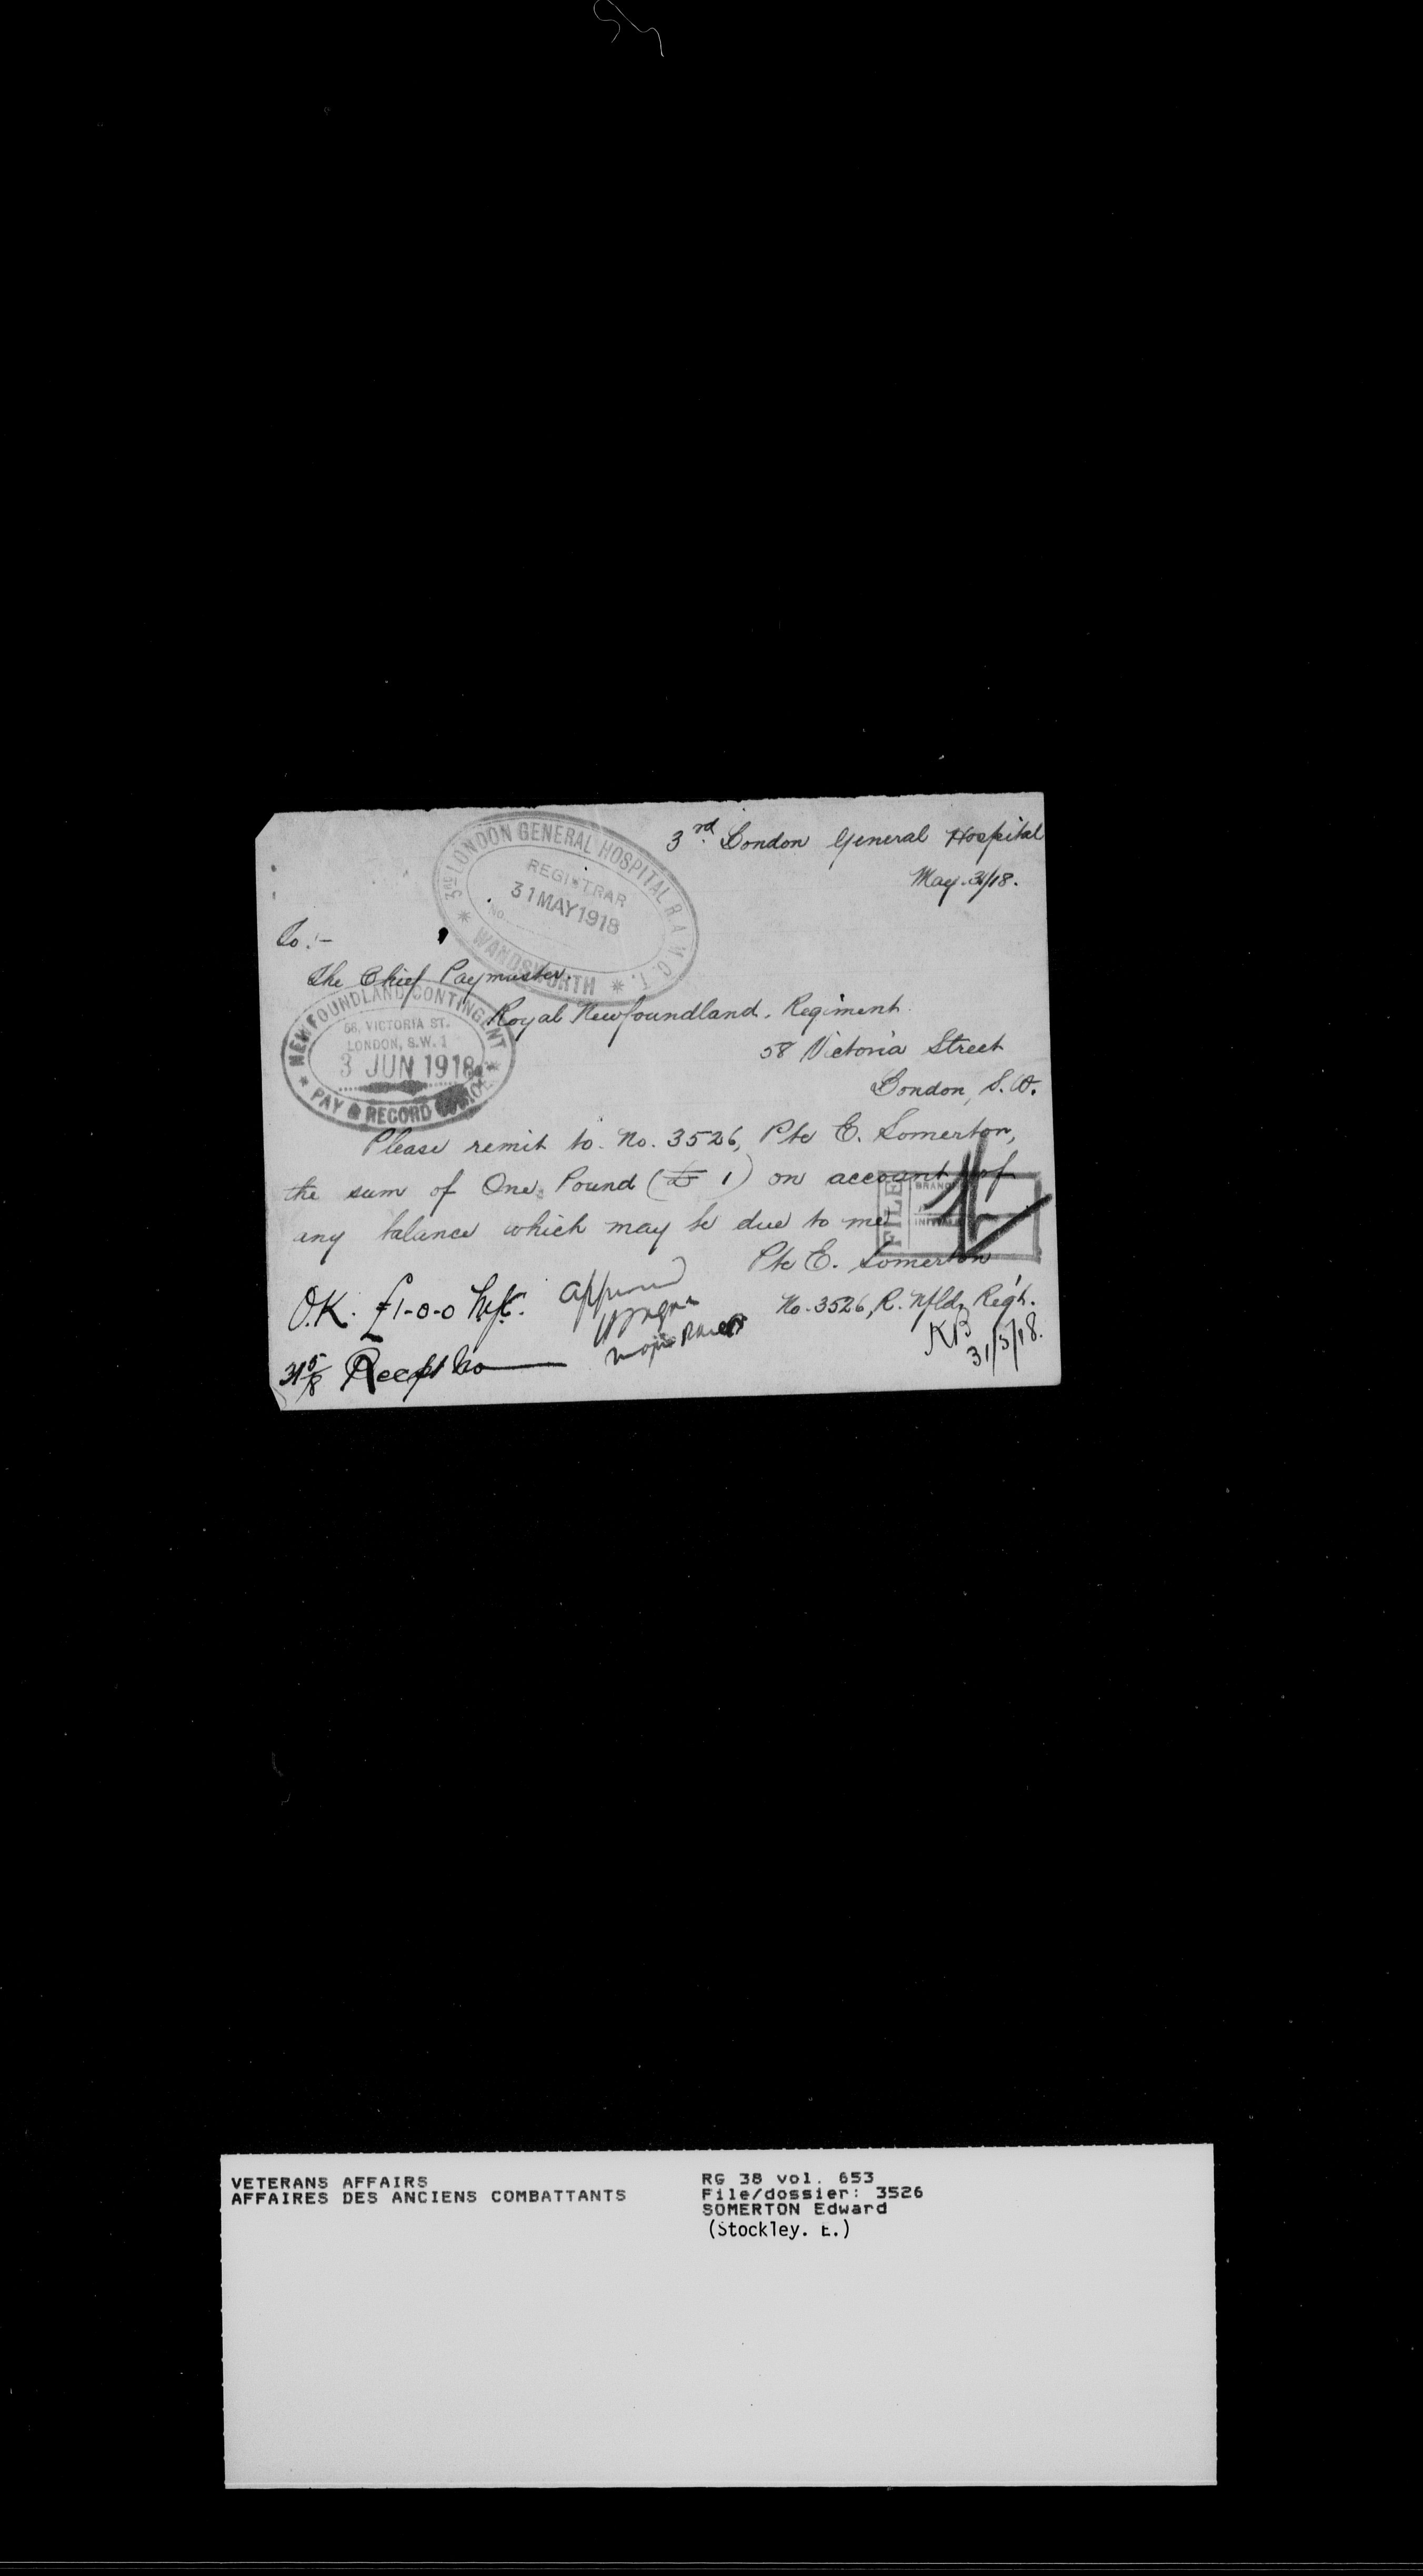 3rd London General Hospital
May. 31/18.
3RD LONDON GENERAL HOSPITAL R.A.M.C.T.
REGISTRAR
31 MAY 1918
No.
* WANDSWORTH *
To:-
The Chief Paymaster.
Royal Newfoundland. Regiment.
58 Victoria Street
London, S.W.
NEWFOUNDLAND CONTINGENT
58, VICTORIA ST.
LONDON, S.W. 1
3 JUN 1918
* PAY & RECORD OFFICE *
Please remit to No. 3526, Pte E. Somerton,
the sum of One Pound (£ 1) on account of
any balance which may be due to me
FILE
BRANCH
INITIALS
Pte E. Somerton
No. 3526, R. Nfld, Reg't.
KB
31/5/18.
O.K. £1-0-0
approved
Major
31/5/18 Receipt No
VETERANS AFFAIRS
AFFAIRES DES ANCIENS COMBATTANTS
RG 38 vol. 653
File/dossier: 3526
SOMERTON Edward
(Stockley. E.)